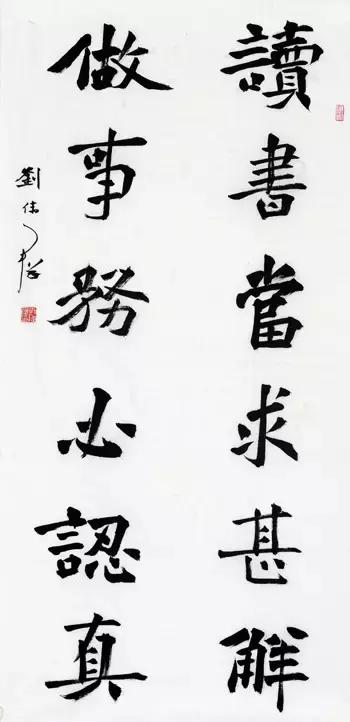 讀書當求甚解
做事務必認真
劉偉